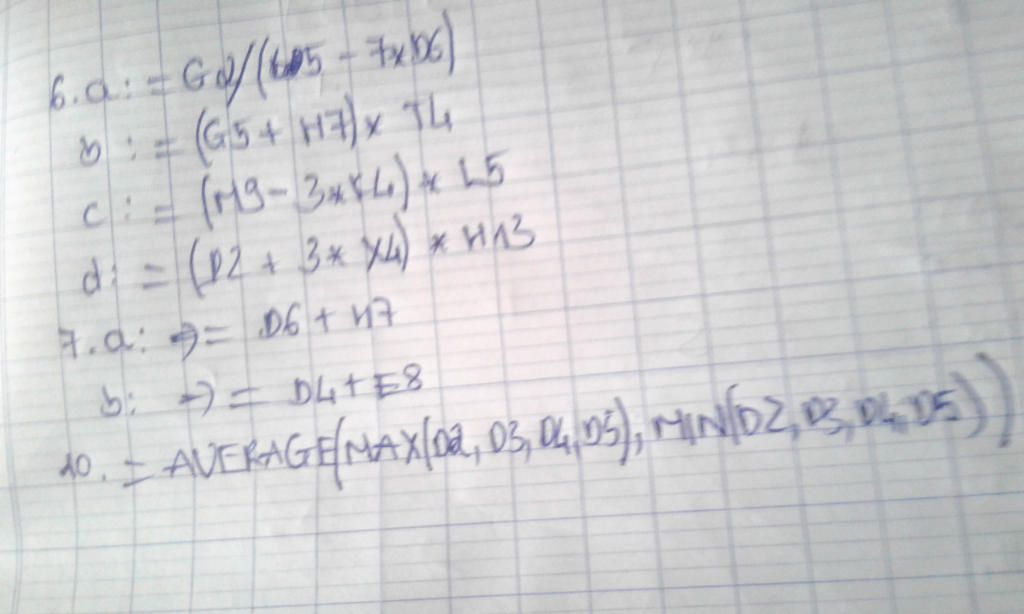 6. a : = G2/(D5 - 7*D6)
b : = (G5 + H7)* T4
c : = (M9 - 3*X4) * L5
d : = (D2 + 3* X4) * H13
7. a : => = D6 + H7
b : => = D4 + E8
10. = AVERAGE(MAX(D2, D3, D4, D5), MIN(D2, D3, D4, D5))